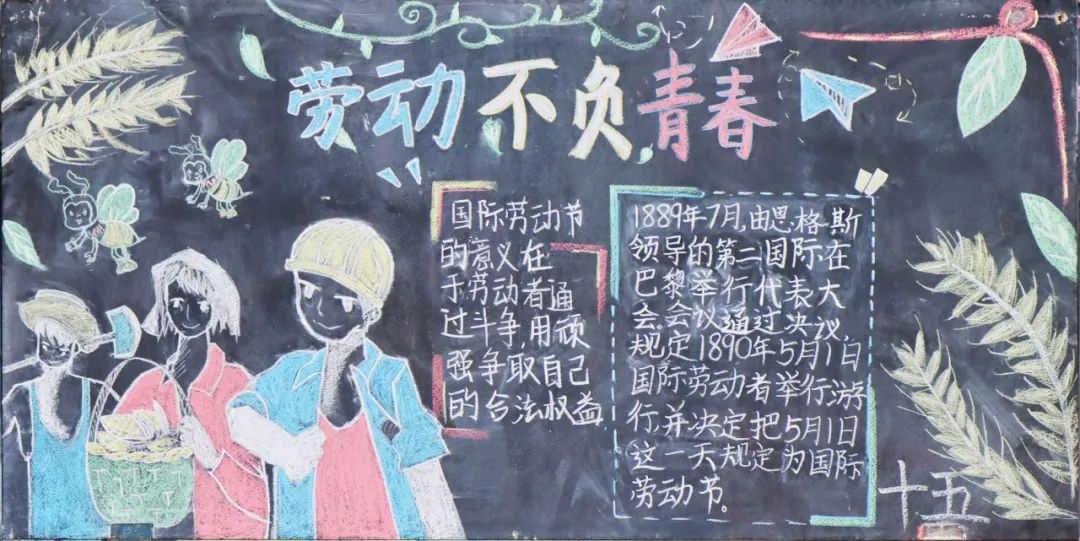 劳动不负青春
国际劳动节
的意义在
于劳动者通
过斗争,用顽
强争取自己
的合法权益
1889年7月,由恩格斯
领导的第二国际在
巴黎举行代表大
会。会议通过决议,
规定1890年5月1日
国际劳动者举行游
行,并决定把5月1日
这一天规定为国际
劳动节。
十五